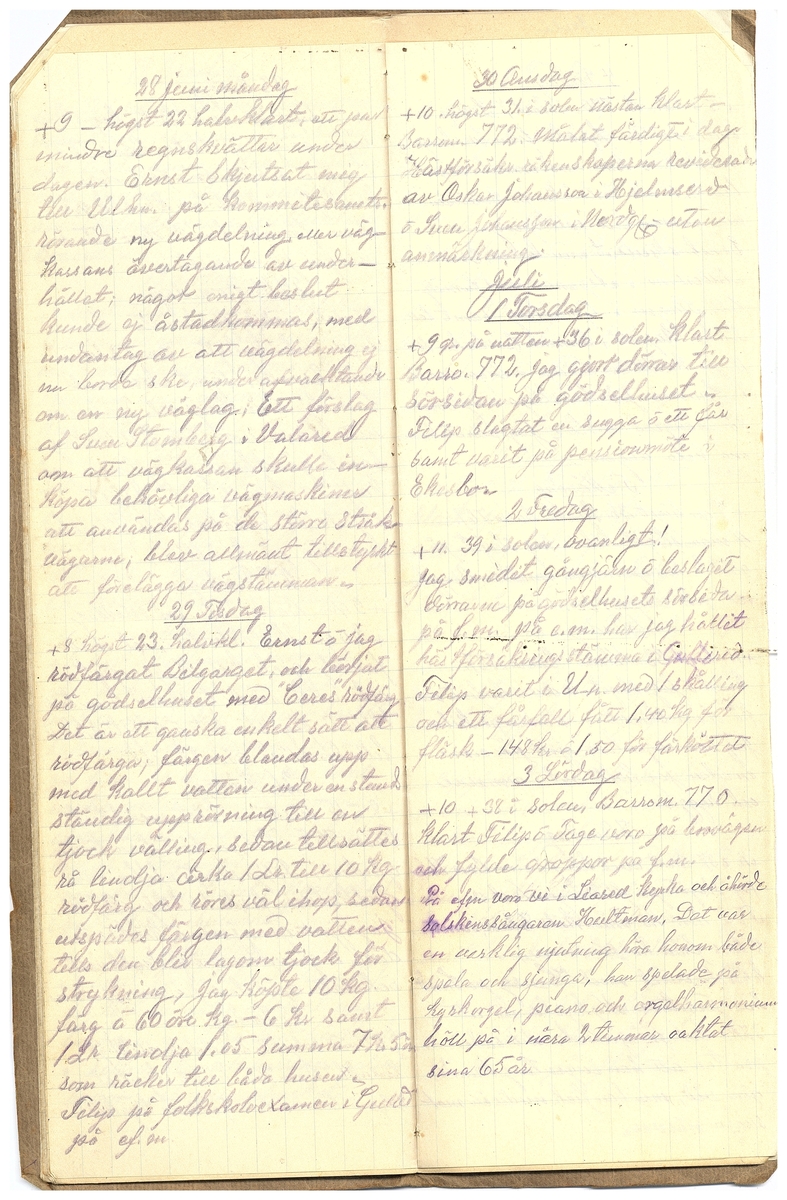 28 juni måndag
+9 – högst 22 halvklart, ett par
mindre regnskvättar under
dagen. Ernst skjutsat meg
till Ulhn. på kommitesamt.
rörande ny vägdelning eller väg-
kassans övertagande av under-
hållet; något enigt beslut
kunde ej åstadkommas, med
undantag av att vägdelning ej
nu borde ske, under afvacktande
om en ny väglag. Ett förslag
af Sven Stomberg i Valared
om att vägkassan skulle in-
köpa behövliga vägmaskiner
att användas på de större stråk-
vägarne, blev allmänt tillstyrkt
att förelägga vägstämman
29 Tisdag
+8 högst 23. halvkl. Ernst ö jag
rödfärgat Bilgarget, och börjat
på gödselhuset med "Ceres" rödfärg
Det är ett ganska enkelt sätt att
rödfärga; färgen blandas upp
med kallt vatten under en ständ
ständig upprörning till en
tjock välling, sedan tillsättes
rå linolja cirka 1 Ltr till 10 kg
rödfärg och röres väl ihop, sedan
utspädes färgen med vatten
tills den blir lagom tjock för
strykning, jag köpte 10 kg.
färg á 60 öre kg. – 6 kr samt
1 Ltr linolja 1,05 summa 7 kr 5 öre
som räcker till båda husen
Filip på folkskolexamen i Gullrd
på ef.m
30 Onsdag
+10. högst 31. i solen nästan klart –
Barrom. 772. Målat färdigt i dag
Hästförsäkr. räkenskaperna reviderade
av Oskar Johansson i Hjelmserd
ö Sven Johansson i utan
anmärkning.
Juli
1 Torsdag
+9 gr. på natten +36 i solen. Klart
Barro. 772. jag gjort dörrar till
Sörsidan på gödselhuset
Filip slagtat en sugga ö ett får
samt varit på pensionmöte i
Ekesbo
2 Fredag
+11. 39 i solen, ovanligt!
jag smidet gångjärn ö beslaget
dörrarne på gödselhusets sörsida
på f.m. på e.m. har jag hållit
hästförsäkringsstämma i Gullered.
Filip varit i U.n. med 1 skålling
och ett fårfall fått 1,40 kg för
fläsk – 148 kr ö 1,50 för fårköttet
3 Lördag
+10 +38 i solen, Barrom. 770.
klart Filip ö Tage voro på brovägen
och fylde groppor på f.m.
På efm voro vi i Leared kyrka och åhörde
solskenssångaren Hultman. Det var
en verklig njutning höra honom både
spela och sjunga, han spelade på
kyrkorgel, piano och orgelharmonium
höll på i nära 2 timmar oaktat
sina 65 år